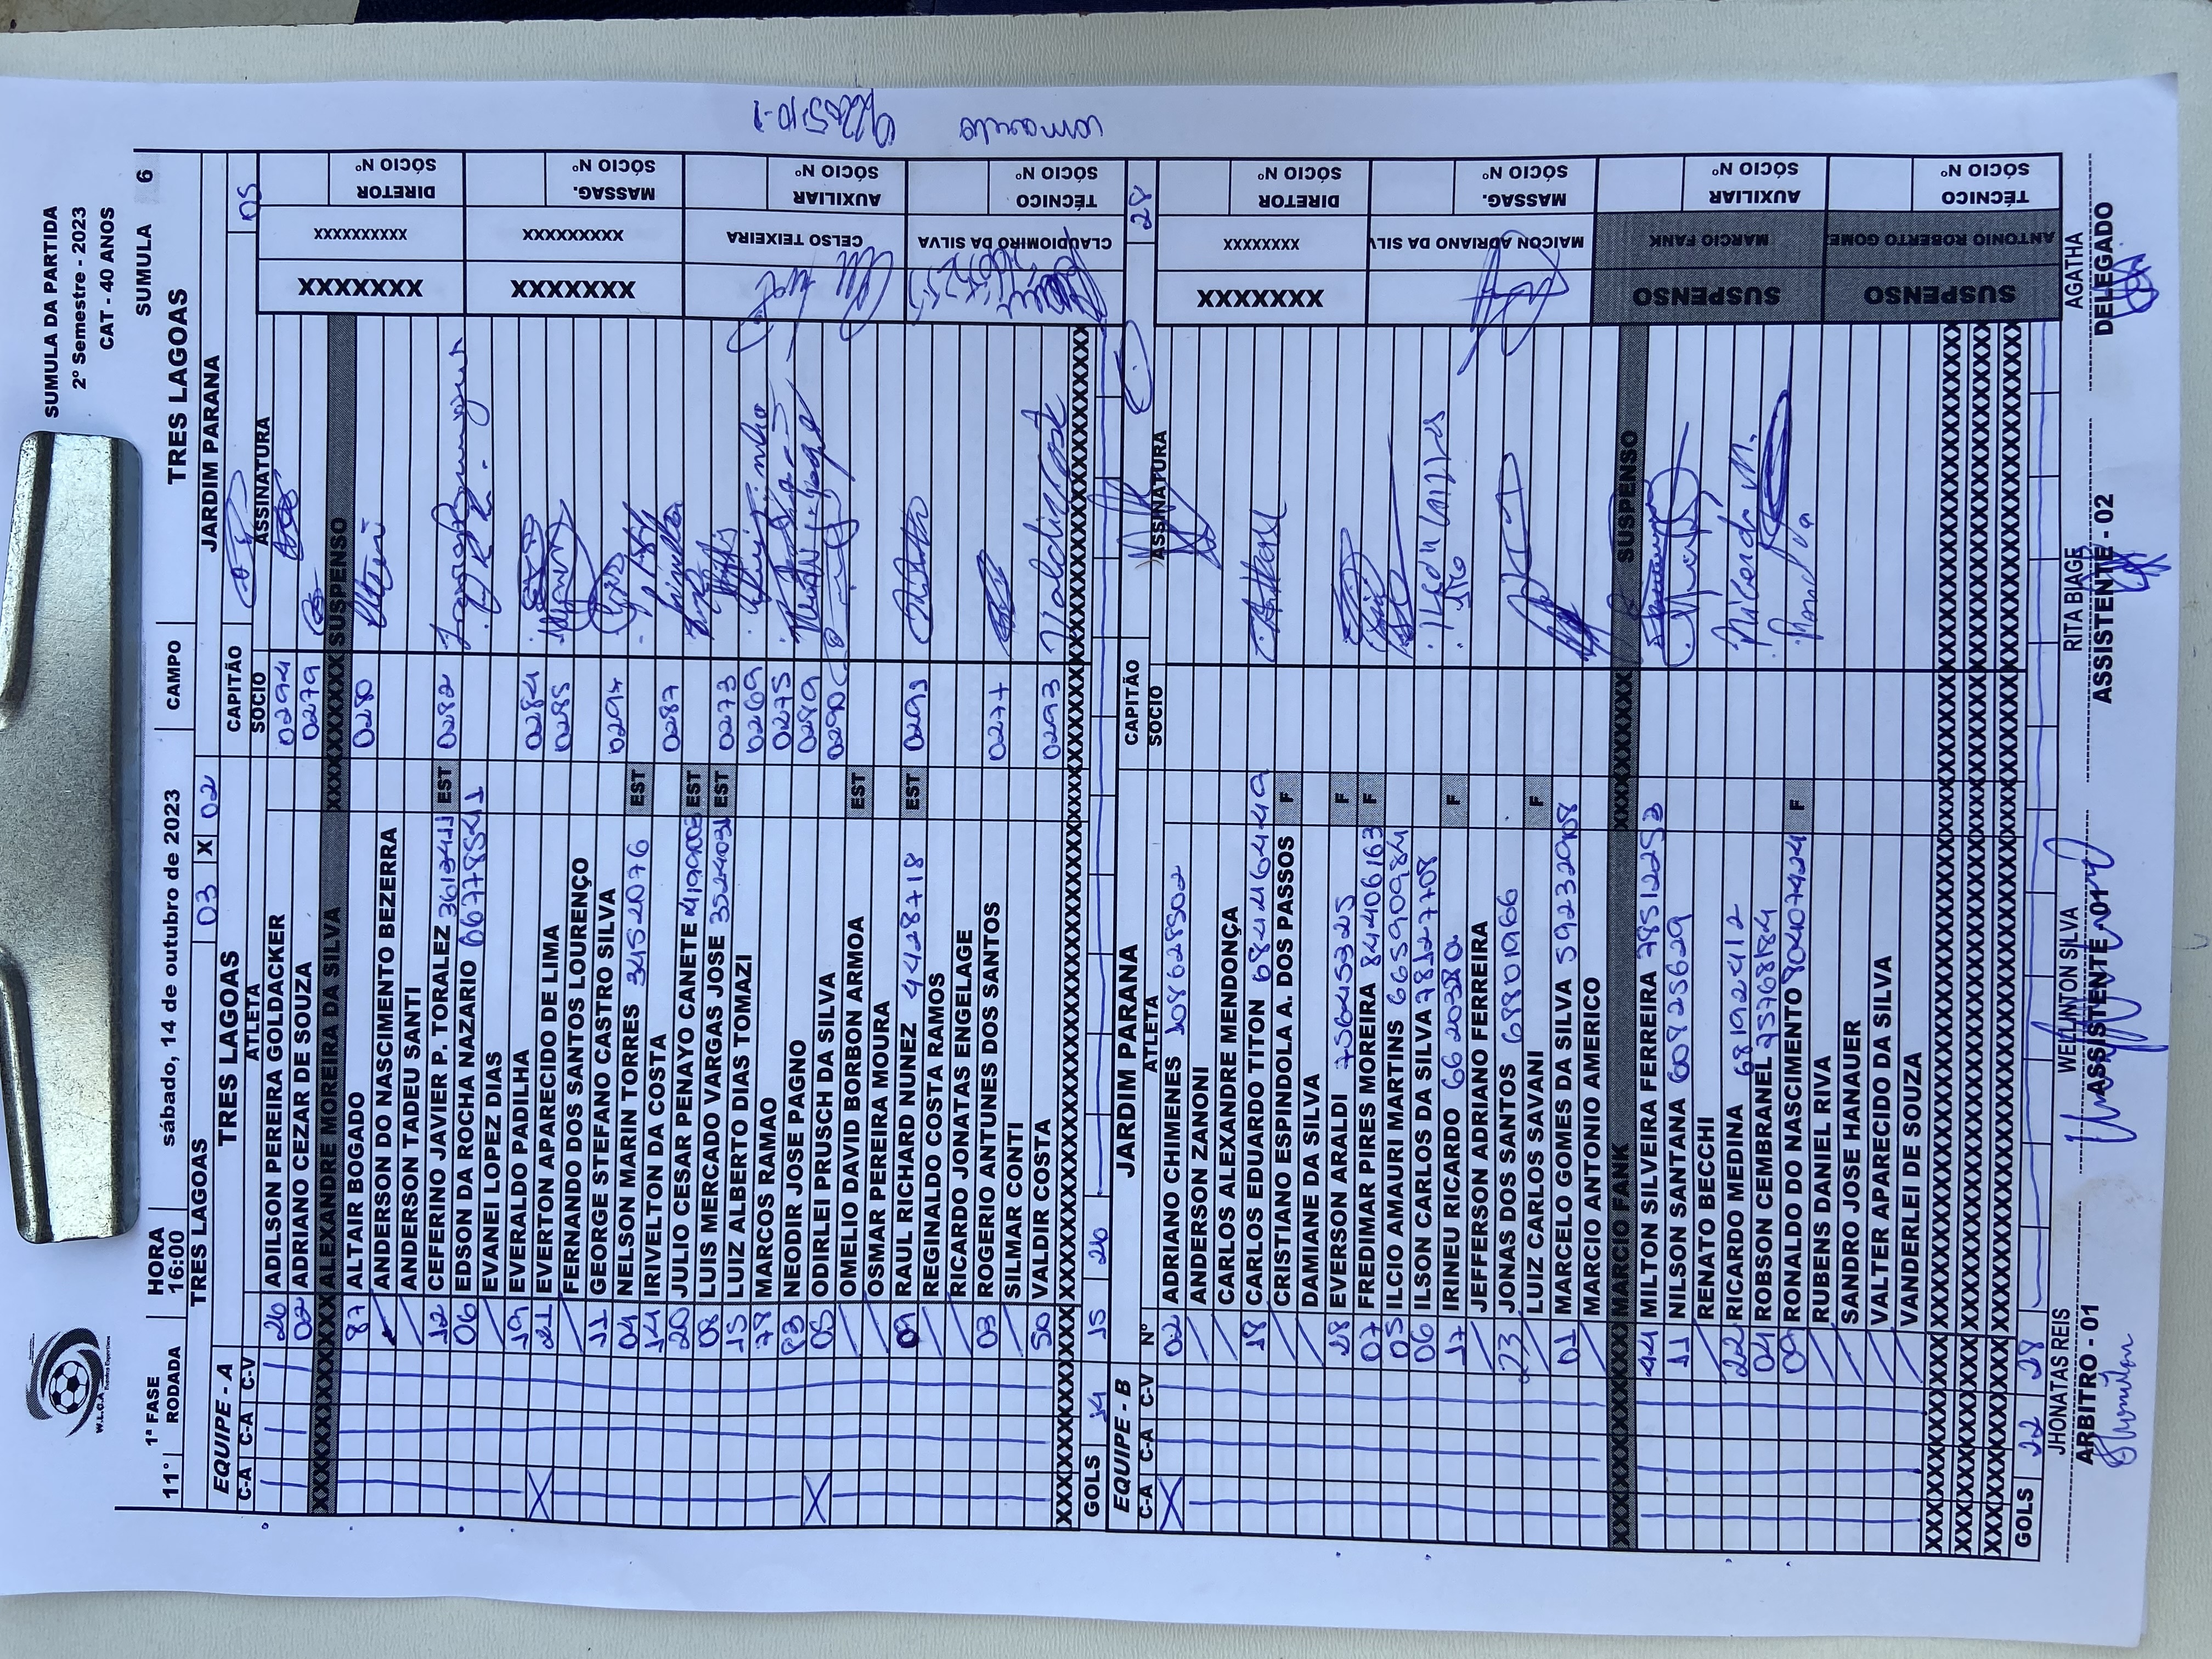 SUMULA DA PARTIDA
2º Semestre - 2023
CAT - 40 ANOS
W.L.C.A
11° 1ª FASE HORA sábado, 14 de outubro de 2023 CAMPO TRES LAGOAS SUMULA 6
RODADA 16:00
TRES LAGOAS 03 X 02 JARDIM PARANA
EQUIPE - A TRES LAGOAS CAPITÃO 05
C-A C-A C-V ATLETA SOCIO ASSINATURA
26 ADILSON PEREIRA GOLDACKER 0294
02 ADRIANO CEZAR DE SOUZA 0279
XXXXXXXXXXXX ALEXANDRE MOREIRA DA SILVA XXXXXXXXXX SUSPENSO
87 ALTAIR BOGADO 0280
ANDERSON DO NASCIMENTO BEZERRA
ANDERSON TADEU SANTI
12 CEFERINO JAVIER P. TORALEZ 3613411 EST 0282
06 EDSON DA ROCHA NAZARIO 667785411
EVANEI LOPEZ DIAS
19 EVERALDO PADILHA 0284
21 EVERTON APARECIDO DE LIMA 0285
FERNANDO DOS SANTOS LOURENÇO
11 GEORGE STEFANO CASTRO SILVA
04 NELSON MARIN TORRES 34152076 EST
14 IRIVELTON DA COSTA 0287
20 JULIO CESAR PENAYO CANETE EST
08 LUIS MERCADO VARGAS JOSE EST 0273
15 LUIZ ALBERTO DIAS TOMAZI 0269
78 MARCOS RAMAO 0275
83 NEODIR JOSE PAGNO 0289
05 ODIRLEI PRUSCH DA SILVA 0290
OMELIO DAVID BORBON ARMOA EST
OSMAR PEREIRA MOURA
09 RAUL RICHARD NUNEZ 44428718 EST
REGINALDO COSTA RAMOS
RICARDO JONATAS ENGELAGE
03 ROGERIO ANTUNES DOS SANTOS 0277
SILMAR CONTI
50 VALDIR COSTA 0293 Valdir Costa
GOLS 14 15 26
DIRETOR XXXXXXXXXX XXXXXXX
SÓCIO Nº
MASSAG. XXXXXXXXX XXXXXXX
SÓCIO Nº
AUXILIAR CELSO TEIXEIRA
SÓCIO Nº
TÉCNICO CLAUDIOMIRO DA SILVA
SÓCIO Nº
EQUIPE - B JARDIM PARANA CAPITÃO 28
C-A C-A C-V Nº ATLETA SOCIO ASSINATURA
02 ADRIANO CHIMENES 108628502
ANDERSON ZANONI
CARLOS ALEXANDRE MENDONÇA
18 CARLOS EDUARDO TITON
CRISTIANO ESPINDOLA A. DOS PASSOS F
DAMIANE DA SILVA
28 EVERSON ARALDI 75645325 F
07 FREDIMAR PIRES MOREIRA 84406163 F
05 ILCIO AMAURI MARTINS 665909984
06 ILSON CARLOS DA SILVA 781277708
17 IRINEU RICARDO F
JEFFERSON ADRIANO FERREIRA
23 JONAS DOS SANTOS 68801966
LUIZ CARLOS SAVANI F
01 MARCELO GOMES DA SILVA 592329808
MARCIO ANTONIO AMERICO
XXXXXXXXXXXX MARCIO FANK XXXXXXXXXX SUSPENSO
44 MILTON SILVEIRA FERREIRA 78512253
11 NILSON SANTANA 608235629
RENATO BECCHI
22 RICARDO MEDINA 681922412
04 ROBSON CEMBRANEL 75768184
09 RONALDO DO NASCIMENTO 804074424 F
RUBENS DANIEL RIVA
SANDRO JOSE HANAUER
VALTER APARECIDO DA SILVA
VANDERLEI DE SOUZA
GOLS 22 28
DIRETOR XXXXXXXX XXXXXXX
SÓCIO Nº
MASSAG. MAICON ADRIANO DA SILV
SÓCIO Nº
AUXILIAR MARCIO FANK SUSPENSO
SÓCIO Nº
TÉCNICO ANTONIO ROBERTO GOME SUSPENSO
SÓCIO Nº
JHONATAS REIS WELINTON SILVA RITA BIAGE AGATHA
ARBITRO - 01 ASSISTENTE - 01 ASSISTENTE - 02 DELEGADO